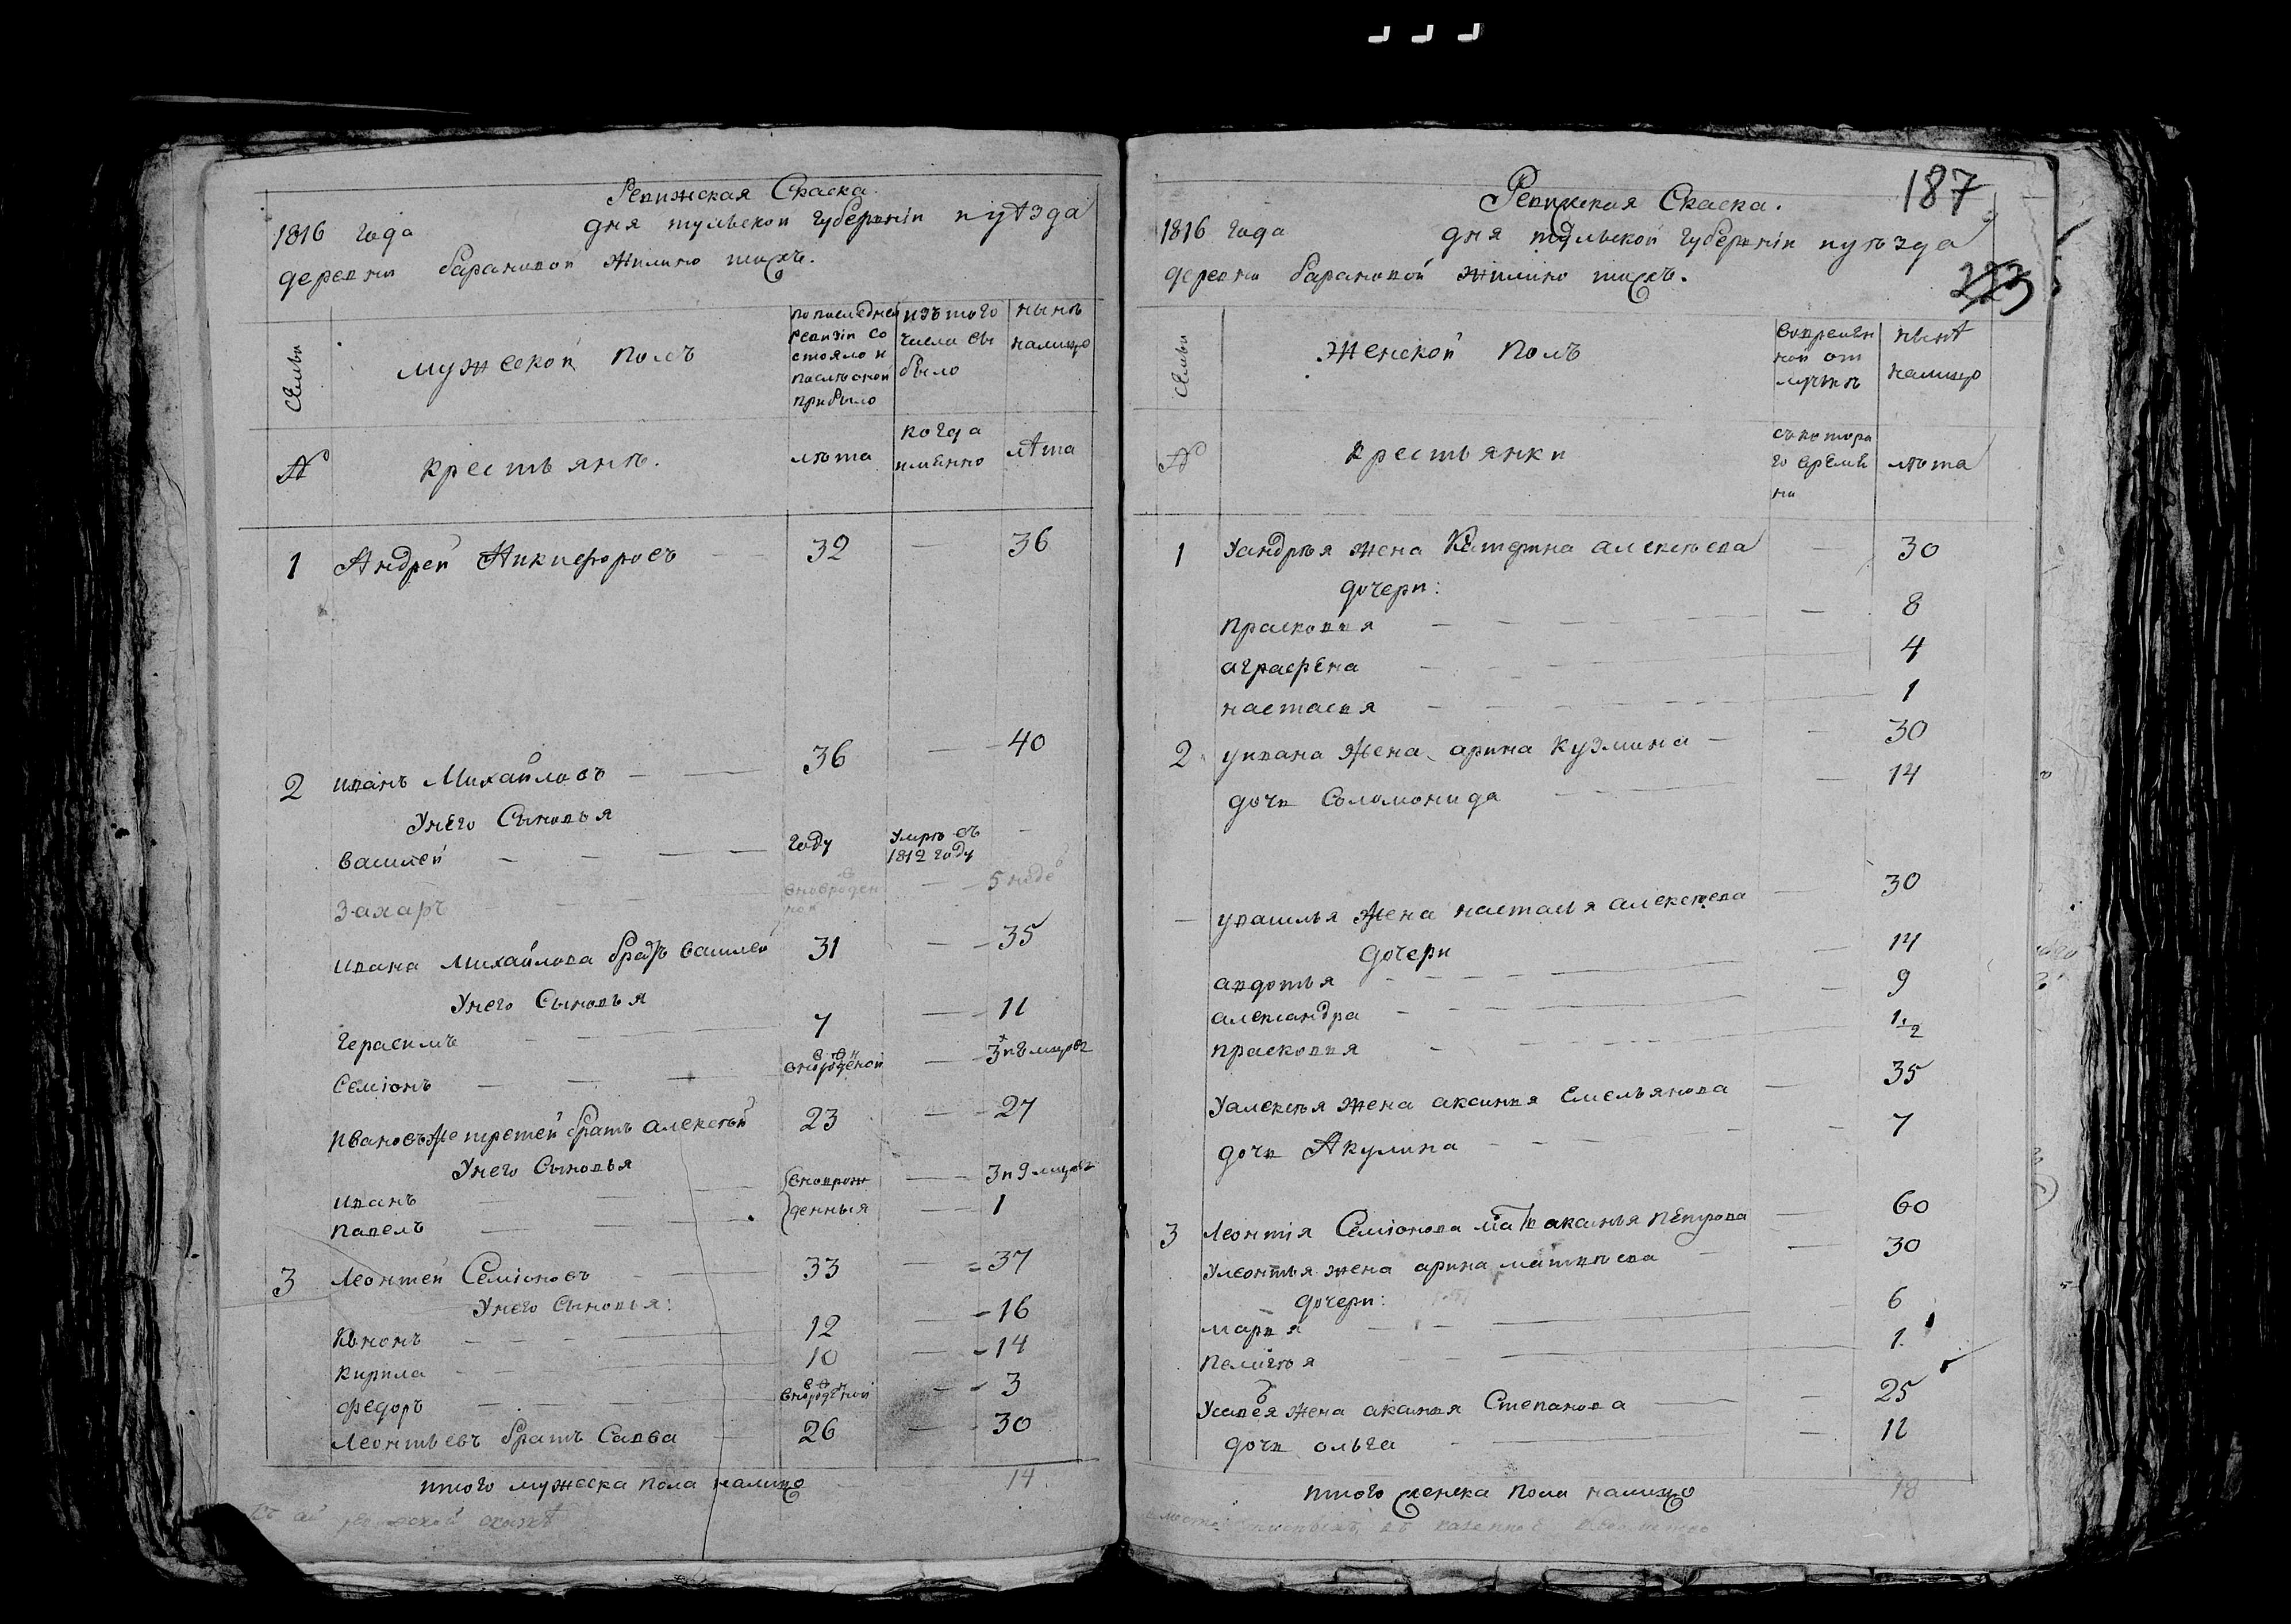 Ревижская Скаска.
1816 года дня тульской губерніи иуѣзда
деревни барановой жилино тихъ.
Семьи
мужескои полъ
попоследней ревизіи состояло и послѣоной прибыло
изътого числа вы было
нынѣ налицо
№
крестьянѣ.
лѣта
когда имѣнно
лѣта
1 Андрей Никифоровъ 32 — 36
2 иванъ Михайловъ 36 — 40
Унего Сыновья
василей году умрѣ въ 1812 году —
Захаръ вновроденной — 5 неде
ивана Михайлова братъ василей 31 — 35
Унего Сыновья
герасимъ 7 — 11
Семіонъ вновроденой — 3
ивановъже третей братъ алексѣй 23 — 27
Унего Сыновья
иванъ вновьрож — 3 и 9 мцовъ
павелъ денныя — 1
3 Леонтей Семіоновъ 33 — 37
Унего Сыновья:
Кононъ 12 — 16
кирила 10 — 14
федоръ вновроденой — 3
Леонтьевъ братъ Савва 26 — 30
итого мужеска пола налицо 14
Ревижская Скаска.
187
1816 года дня тульской губерніи иуѣзда
223
деревни барановой жилино тихъ.
Семьи
Женской полъ
вовремянной отлучкѣ
нынѣ налицо
№
крестьянки
съкотораго времѣни
лѣта
1 Уандрѣя жена Катерина алексѣева — 30
дочери:
прасковья — 8
аграфѣна 4
настасья 1
2 уивана жена арина кузмина — 30
дочь Соломонида — 14
— увасилья жена настасья алексѣева — 30
дочери
авдотья — 14
александра — 9
прасковья 1 1/2
Уалексѣя жена аксинья Емельянова — 35
дочь Акулина — 7
3 Леонтія Семіонова мать аксинья пѣтрова — 60
Улеонтья жена арина матвѣева — 30
дочери:
марья 6
пелагѣя 1.
Усавъвя жена аксинья Степанова — 25
дочь ольга — 11
итого женска пола налицо 18